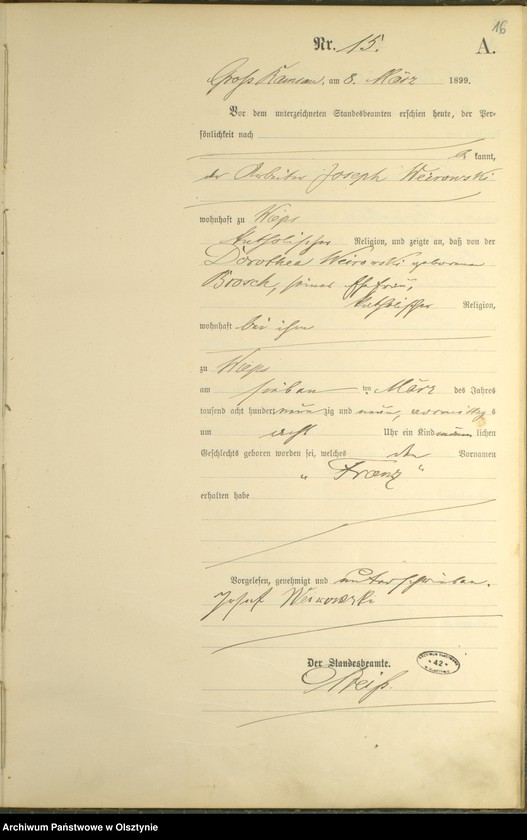 16
Nr. 15. A.
Groß Kamenau, am 8. März 1899.
Vor dem unterzeichneten Standesbeamten erschien heute, der Per-
sönlichkeit nach
be kannt,
der Arbeiter Joseph Weirowski
wohnhaft zu Wieps
katholischer Religion, und zeigte an, daß von der
Dorothea Weirowski geborenen
Brosch, seiner Ehefrau,
katholischer Religion,
wohnhaft bei ihm
zu Wieps
am sieben ten März des Jahres
tausend acht hundert neun zig und neun, vormittag s
um acht Uhr ein Kind männ lichen
Geschlechts geboren worden sei, welches den Vornamen
„ Franz “
erhalten habe
Vorgelesen, genehmigt und unterschrieben.
Josef Weirowski
Der Standesbeamte.
42
Archiwum Państwowe w Olsztynie